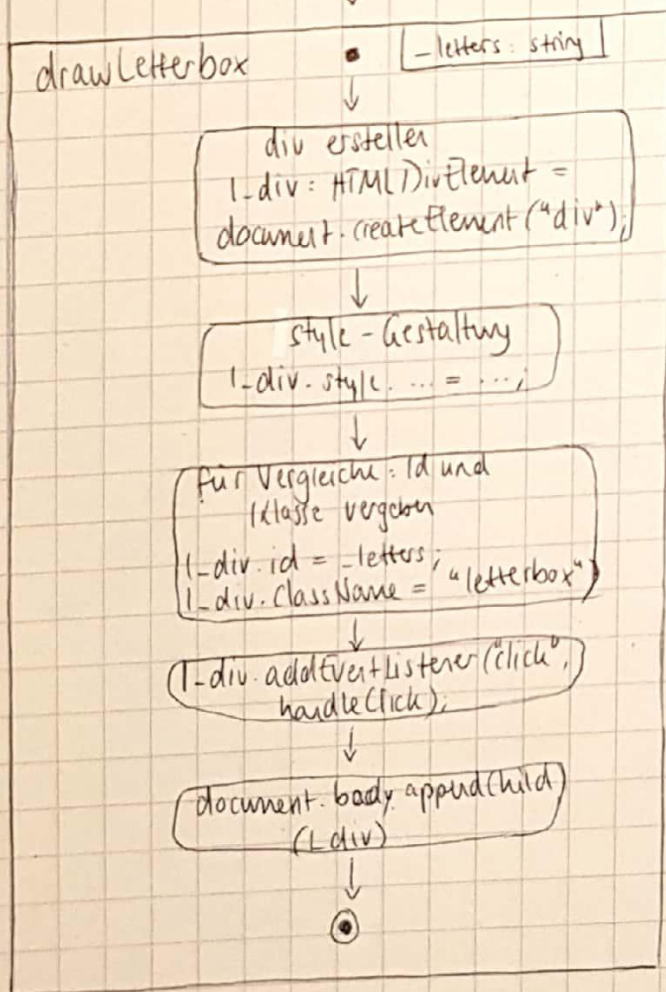 drawLetterbox
_letters: string
div erstellen
l_div: HTMLDivElement =
document.createElement("div");
style-Gestaltung
l_div.style. ... = ...;
für Vergleiche: Id und
Klasse vergeben
l_div.id = _letters;
l_div.ClassName = "letterbox"
l_div.addEventListener("click",
handleClick);
document.body.appendChild
(l_div)